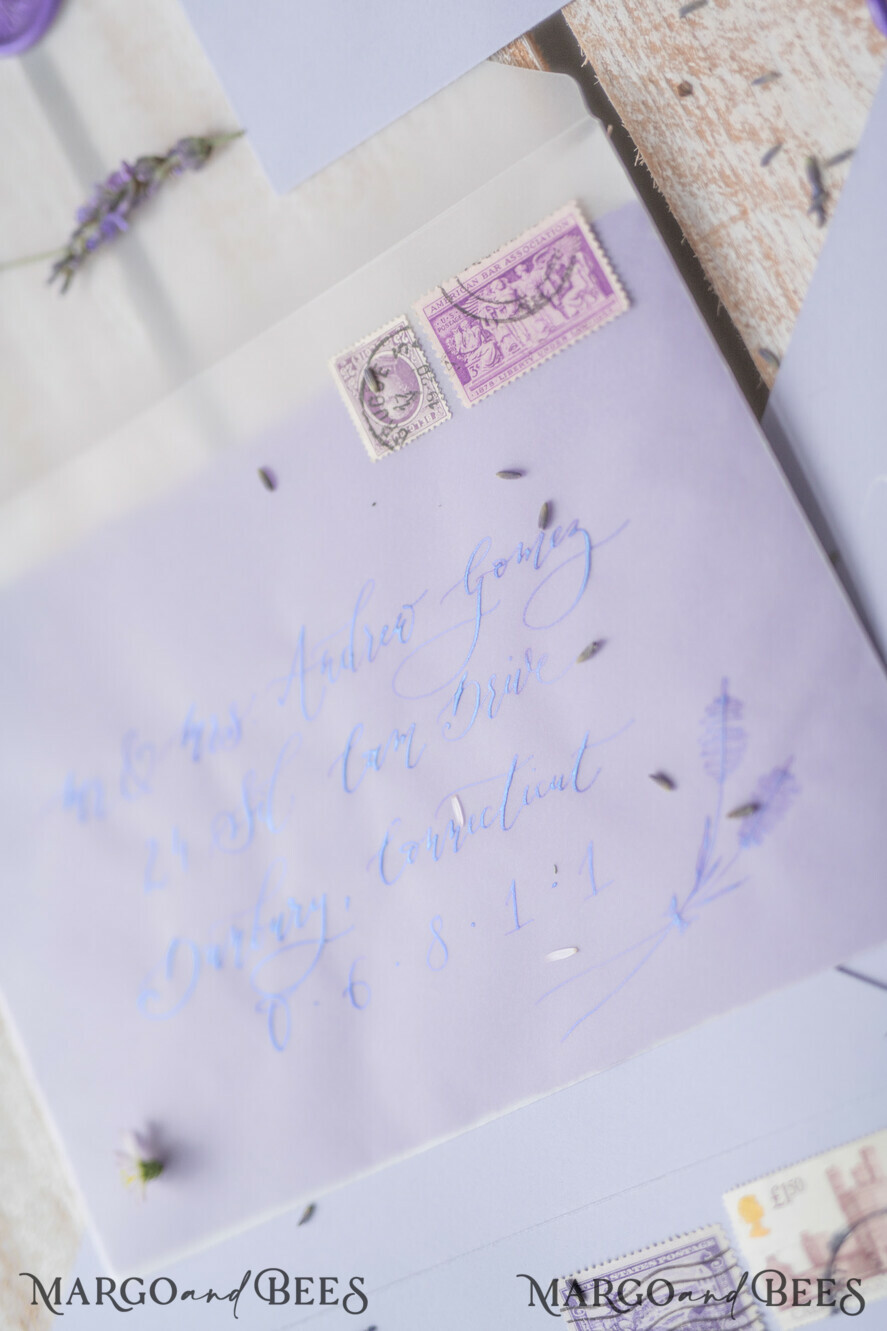 AMERICAN BAR ASSOCIATION
Mr & Mrs Andrew Gomez
24 Cam Drive
Danbury, Connecticut
0 · 6 · 8 · 1 · 1
£1.50
MARGO and BEES MARGO and BEES